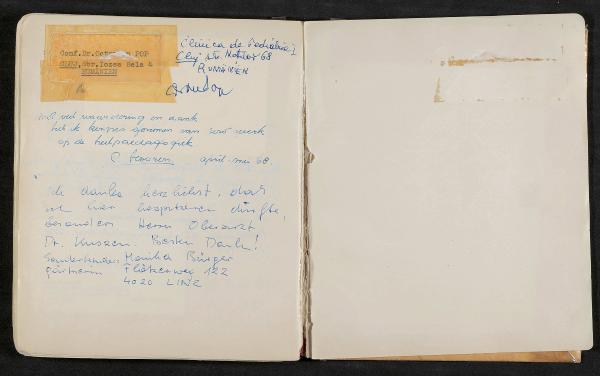 Conf.Dr. POP
CLUJ,Str.Iozsa Bela 4
RUMÄNIEN
Clinica de Pediatrie I
Cluj Str. 68
RUMÄNIEN
Met veel waardering en dank
heb ik kennis genomen van Uw werk
op de heilpaedagogiek
april-mei 68.
Ich danke herzlichst, daß
ich hier hospitieren durfte,
besonders Herrn Oberarzt
Dr. Kuszen. Besten Dank!
Sonderkinder- Monika Bürger
gärtnerin Flötzerweg 122
4020 LINZ